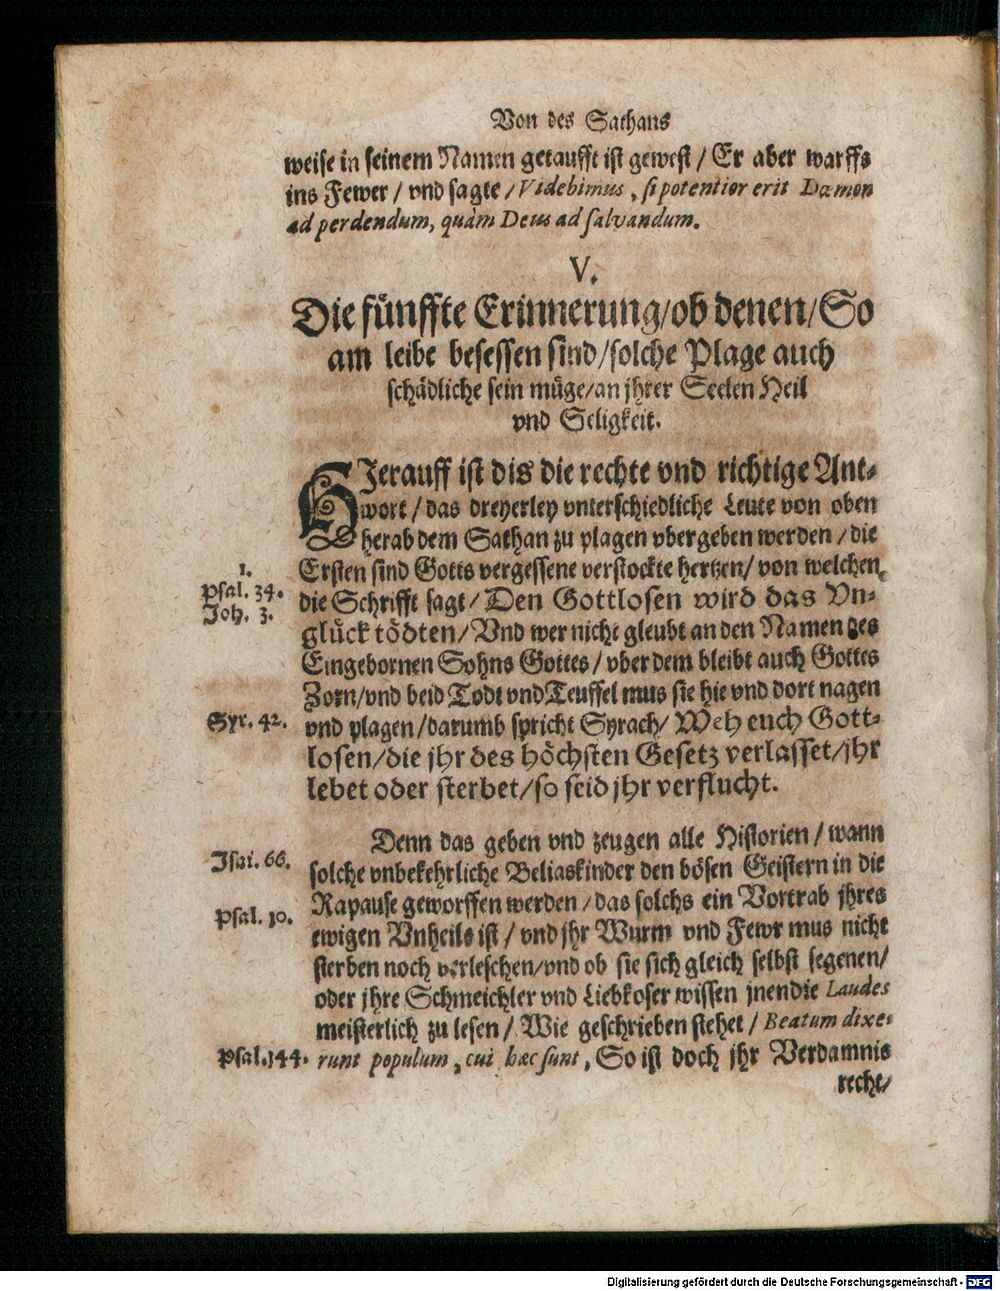 Von des Sathans
weise in seinem Namen getaufft ist gewest / Er aber warffs
ins Fewer / vnd sagte / Videbimus, si potentior erit Dæmon
ad perdendum, quàm Deus ad salvandum.
V.
Die fünffte Erinnerung/ob denen/So
am leibe besessen sind/solche Plage auch
schädliche sein müge/an jhrer Seelen Heil
vnd Seligkeit.
HIerauff ist dis die rechte vnd richtige Ant-
wort / das dreyerley vnterschiedliche Leute von oben
herab dem Sathan zu plagen vbergeben werden / die
1.
Ersten sind Gotts vergessene verstockte hertzen/ von welchen
Psal. 34.
die Schrifft sagt/ Den Gottlosen wird das Vn-
Joh. 3.
glück tödten/ Vnd wer nicht gleubt an den Namen des
Eingebornen Sohns Gottes / vber dem bleibt auch Gottes
Zorn/vnd beid Todt vnd Teuffel mus sie hie vnd dort nagen
Syr. 42.
vnd plagen /darumb spricht Syrach/ Weh euch Gott-
losen/die jhr des höchsten Gesetz verlasset/jhr
lebet oder sterbet/so seid jhr verflucht.
Denn das geben vnd zeugen alle Historien / wann
Isai. 66.
solche vnbekehrliche Beliaskinder den bösen Geistern in die
Rapause geworffen werden / das solchs ein Vortrab jhres
Psal. 10.
ewigen Vnheils ist / vnd jhr Wurm vnd Fewr mus nicht
sterben noch verleschen/vnd ob sie sich gleich selbst segenen/
oder jhre Schmeichler vnd Liebkoser wissen jnen die Laudes
meisterlich zu lesen / Wie geschrieben stehet / Beatum dixe-
Psal. 144.
runt populum, cui hæc sunt, So ist doch jhr Verdamnis
recht/
Digitalisierung gefördert durch die Deutsche Forschungsgemeinschaft - DFG